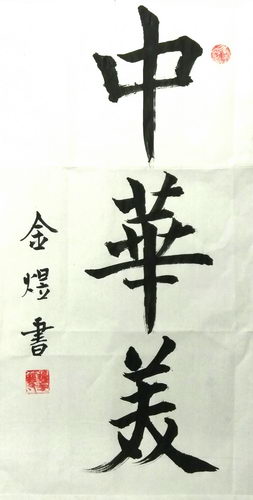 中華美
金煜書